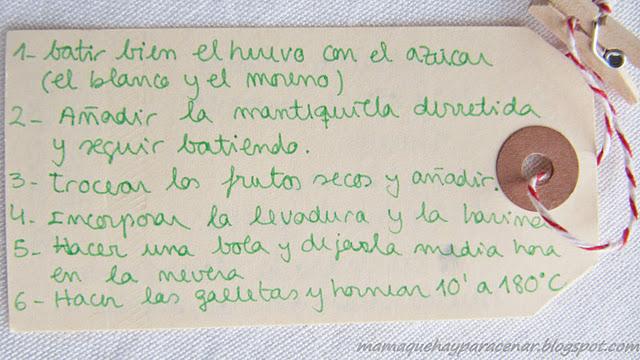 1- batir bien el huevo con el azúcar
(el blanco y el moreno)
2- Añadir la mantiquilla derretida
y seguir batiendo.
3- trocear los frutos secos y añadir.
4- Incorporar la levadura y la harina
5- Hacer una bola y dejarla media hora
en la nevera
6- Hacer las galletas y hornear 10' a 180°C
mamaquehayparacenar.blogspot.com